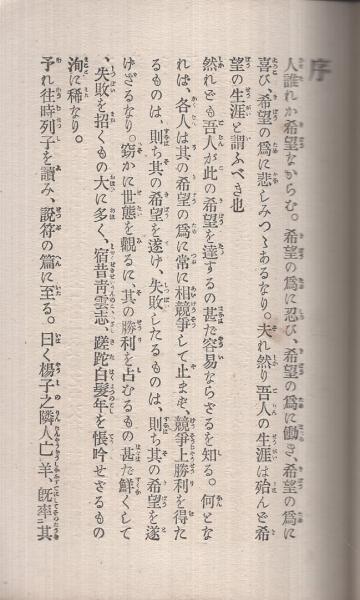 序
人誰れか希望なからむ。希望の爲に忍び、希望の爲に働き、希望の爲に
喜び、希望の爲に悲しみつゝあるなり。夫れ然り吾人の生涯は殆んど希
望の生涯と謂ふべき也
然れども吾人が此の希望を達するの甚だ容易ならざるを知る。何とな
れば、各人は其の希望の爲に常に相競爭して止まず、競爭上勝利を得た
るものは、則ち其の希望を遂げ、失敗したるものは、則ち其の希望を遂
げざるなり。窃かに世態を觀るに、其の勝利を占むるもの甚だ鮮くして
、失敗を招くもの大に多く、宿昔靑雲志、蹉跎白髮年を悵吟せざるもの
洵に稀なり。
予れ往時列子を讀み、說符の篇に至る。曰く楊子之隣人亡羊、旣率其